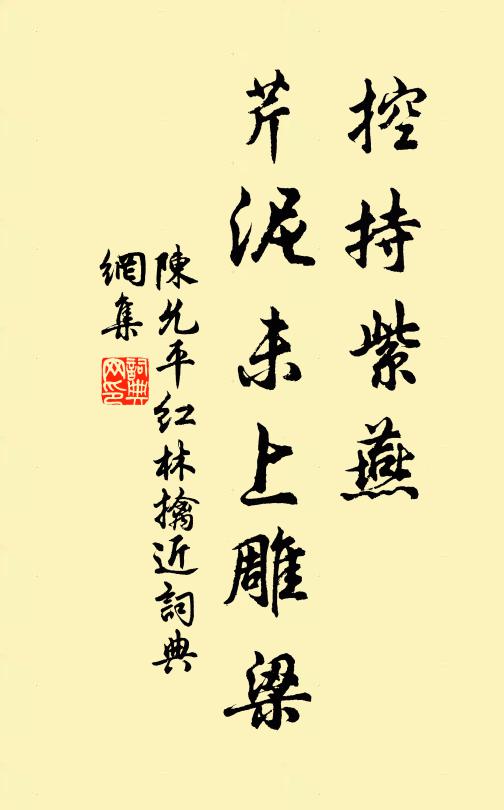 控持紫燕
芹泥未上雕梁
陳允平紅林擒近詞典
網集
詞典
网印